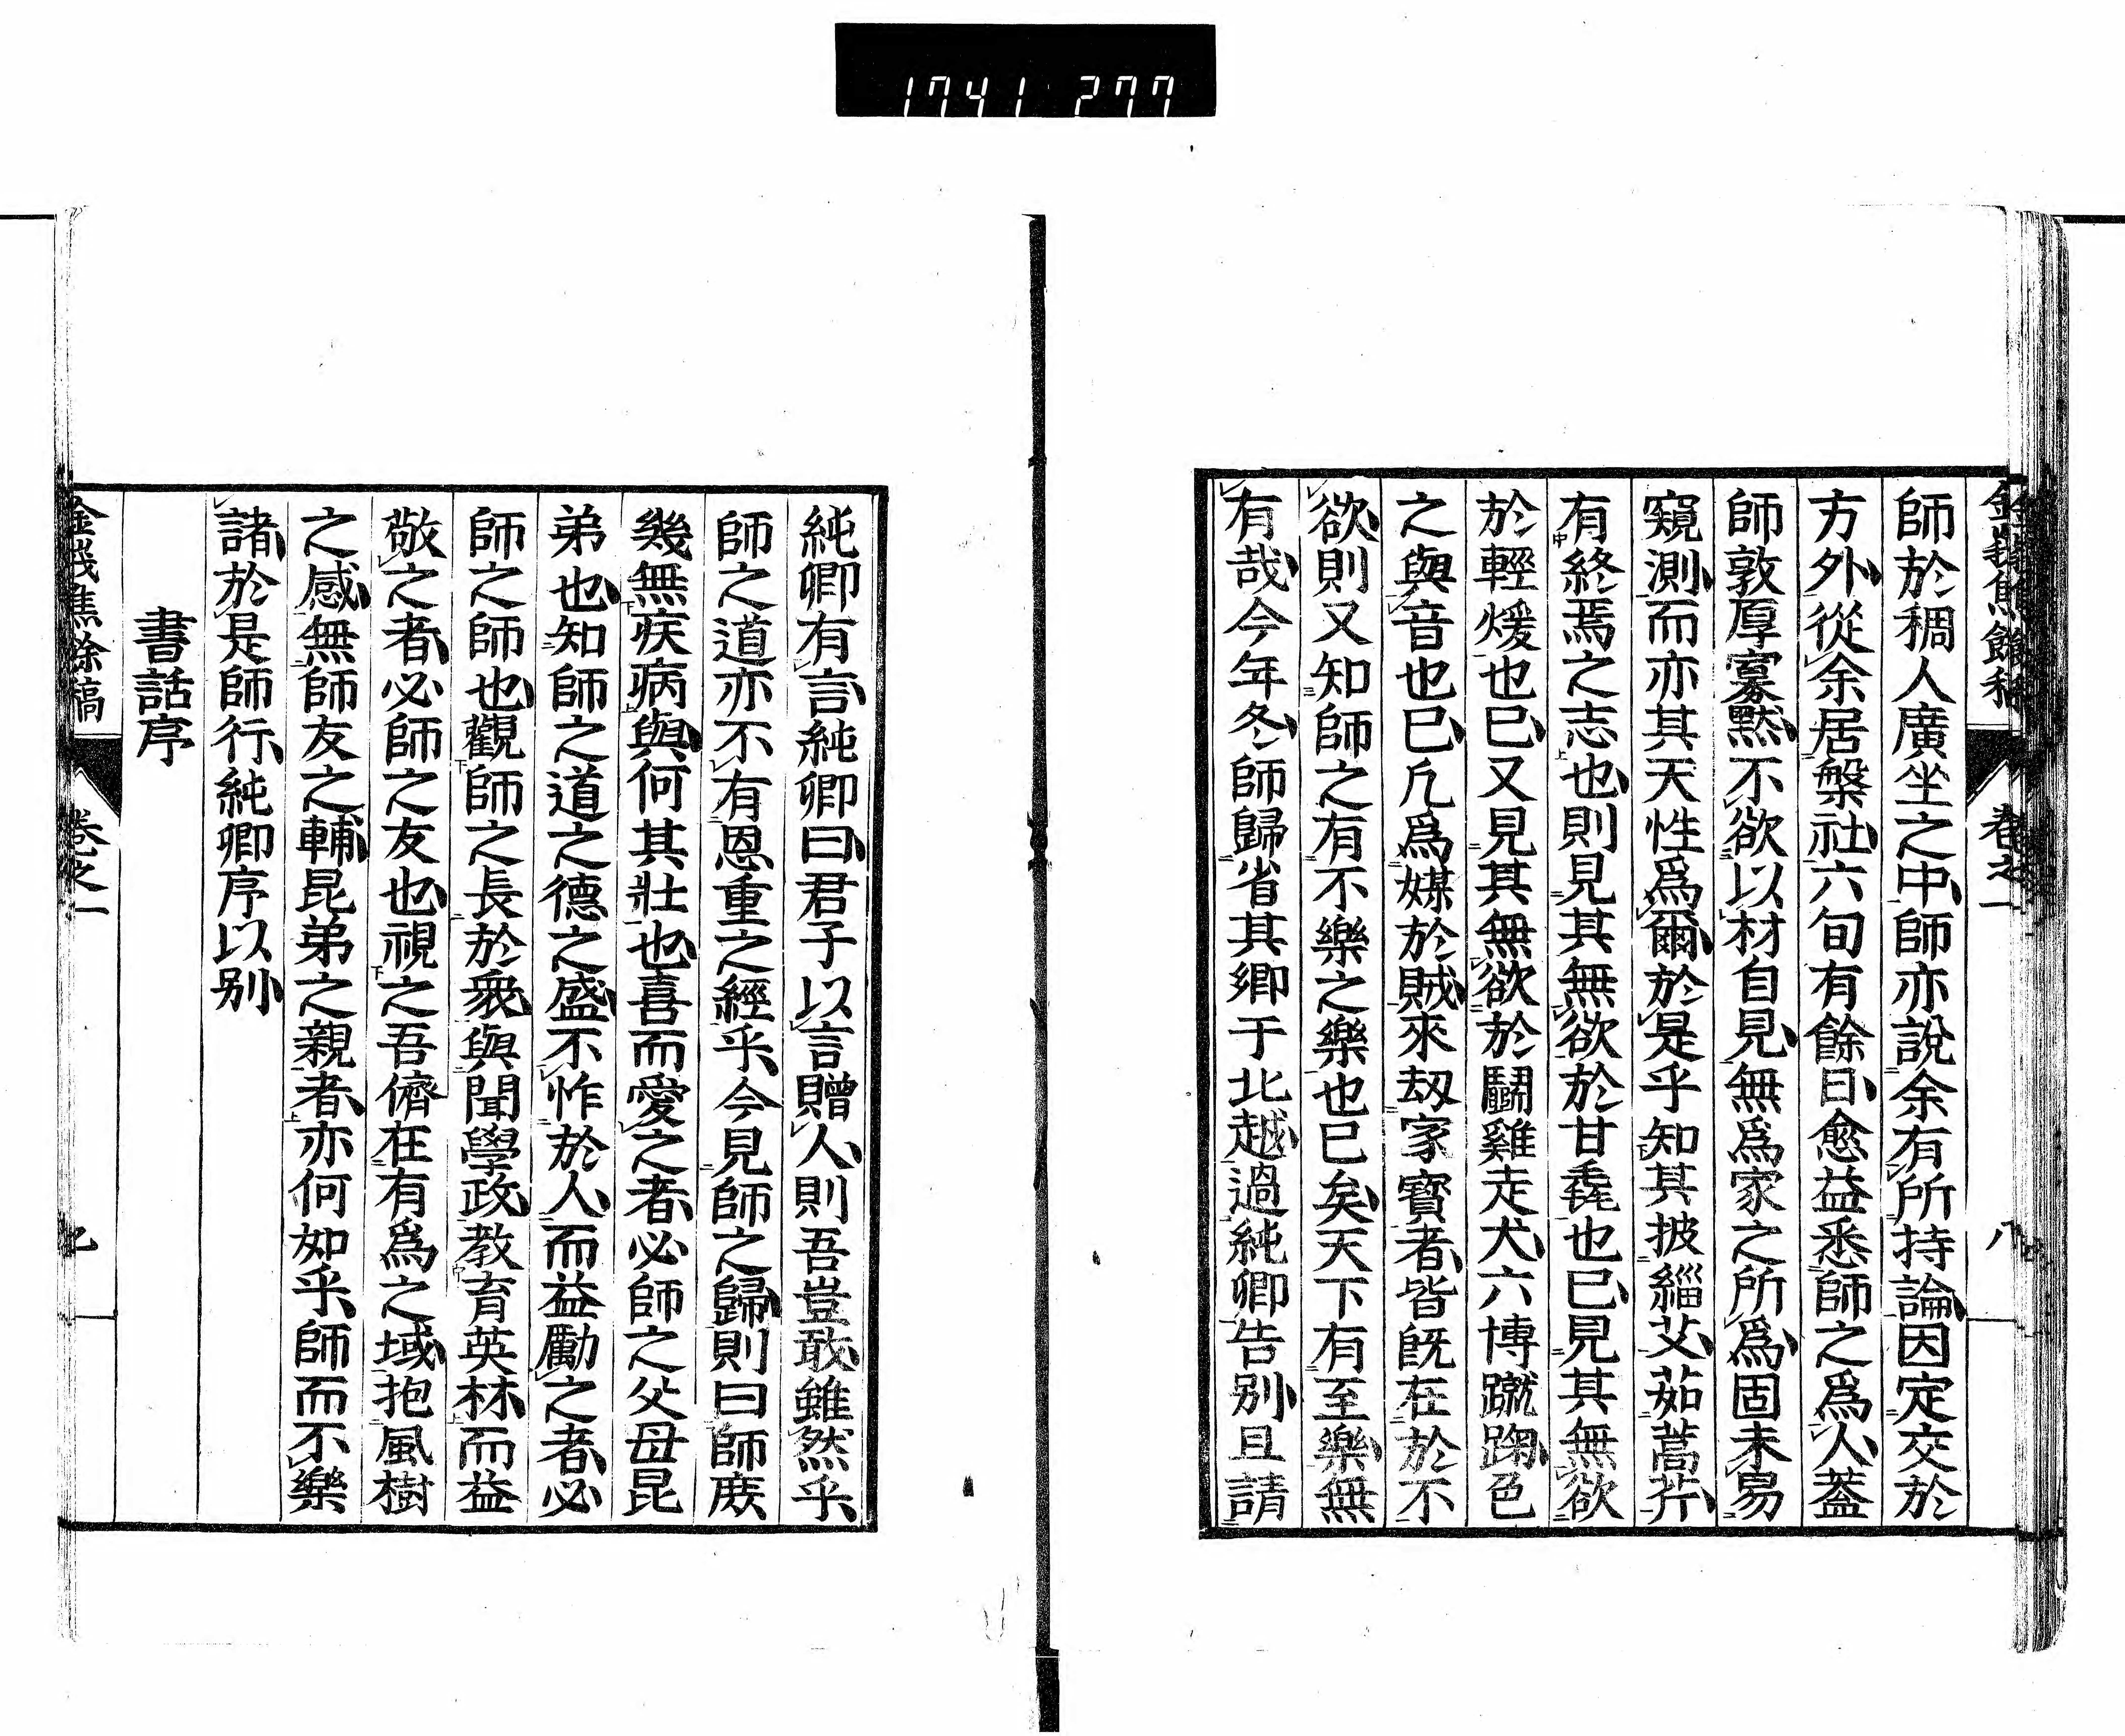 1741 277
師於稠人廣坐之中師亦說余有所持論因定交於
方外從余居槃社六旬有餘日愈益悉師之爲人蓋
師敦厚寡默不欲以材自見無爲家之所爲固未易
窺測而亦其天性爲爾於是乎知其披緇艾茹蒿芥
有終焉之志也則見其無欲於甘毳也已見其無欲
於輕煖也已又見其無欲於鬭雞走犬六博蹴踘色
之與音也已凡爲媒於賊來刼家寶者皆旣在於不
欲則又知師之有不樂之樂也已矣天下有至樂無
有哉今年冬師歸省其鄉于北越過純卿告别且請
卷之一
八
純卿有言純卿曰君子以言贈人則吾豈敢雖然乎
師之道亦不有恩重之經乎今見師之歸則曰師庶
幾無疾病與何其壯也喜而愛之者必師之父母昆
弟也知師之道之德之盛不怍於人而益勵之者必
師之師也觀師之長於衆與聞學政教育英林而益
敬之者必師之友也視之吾儕在有爲之域抱風樹
之感無師友之輔昆弟之親者亦何如乎師而不樂
諸於是師行純卿序以别
書話序
卷之一